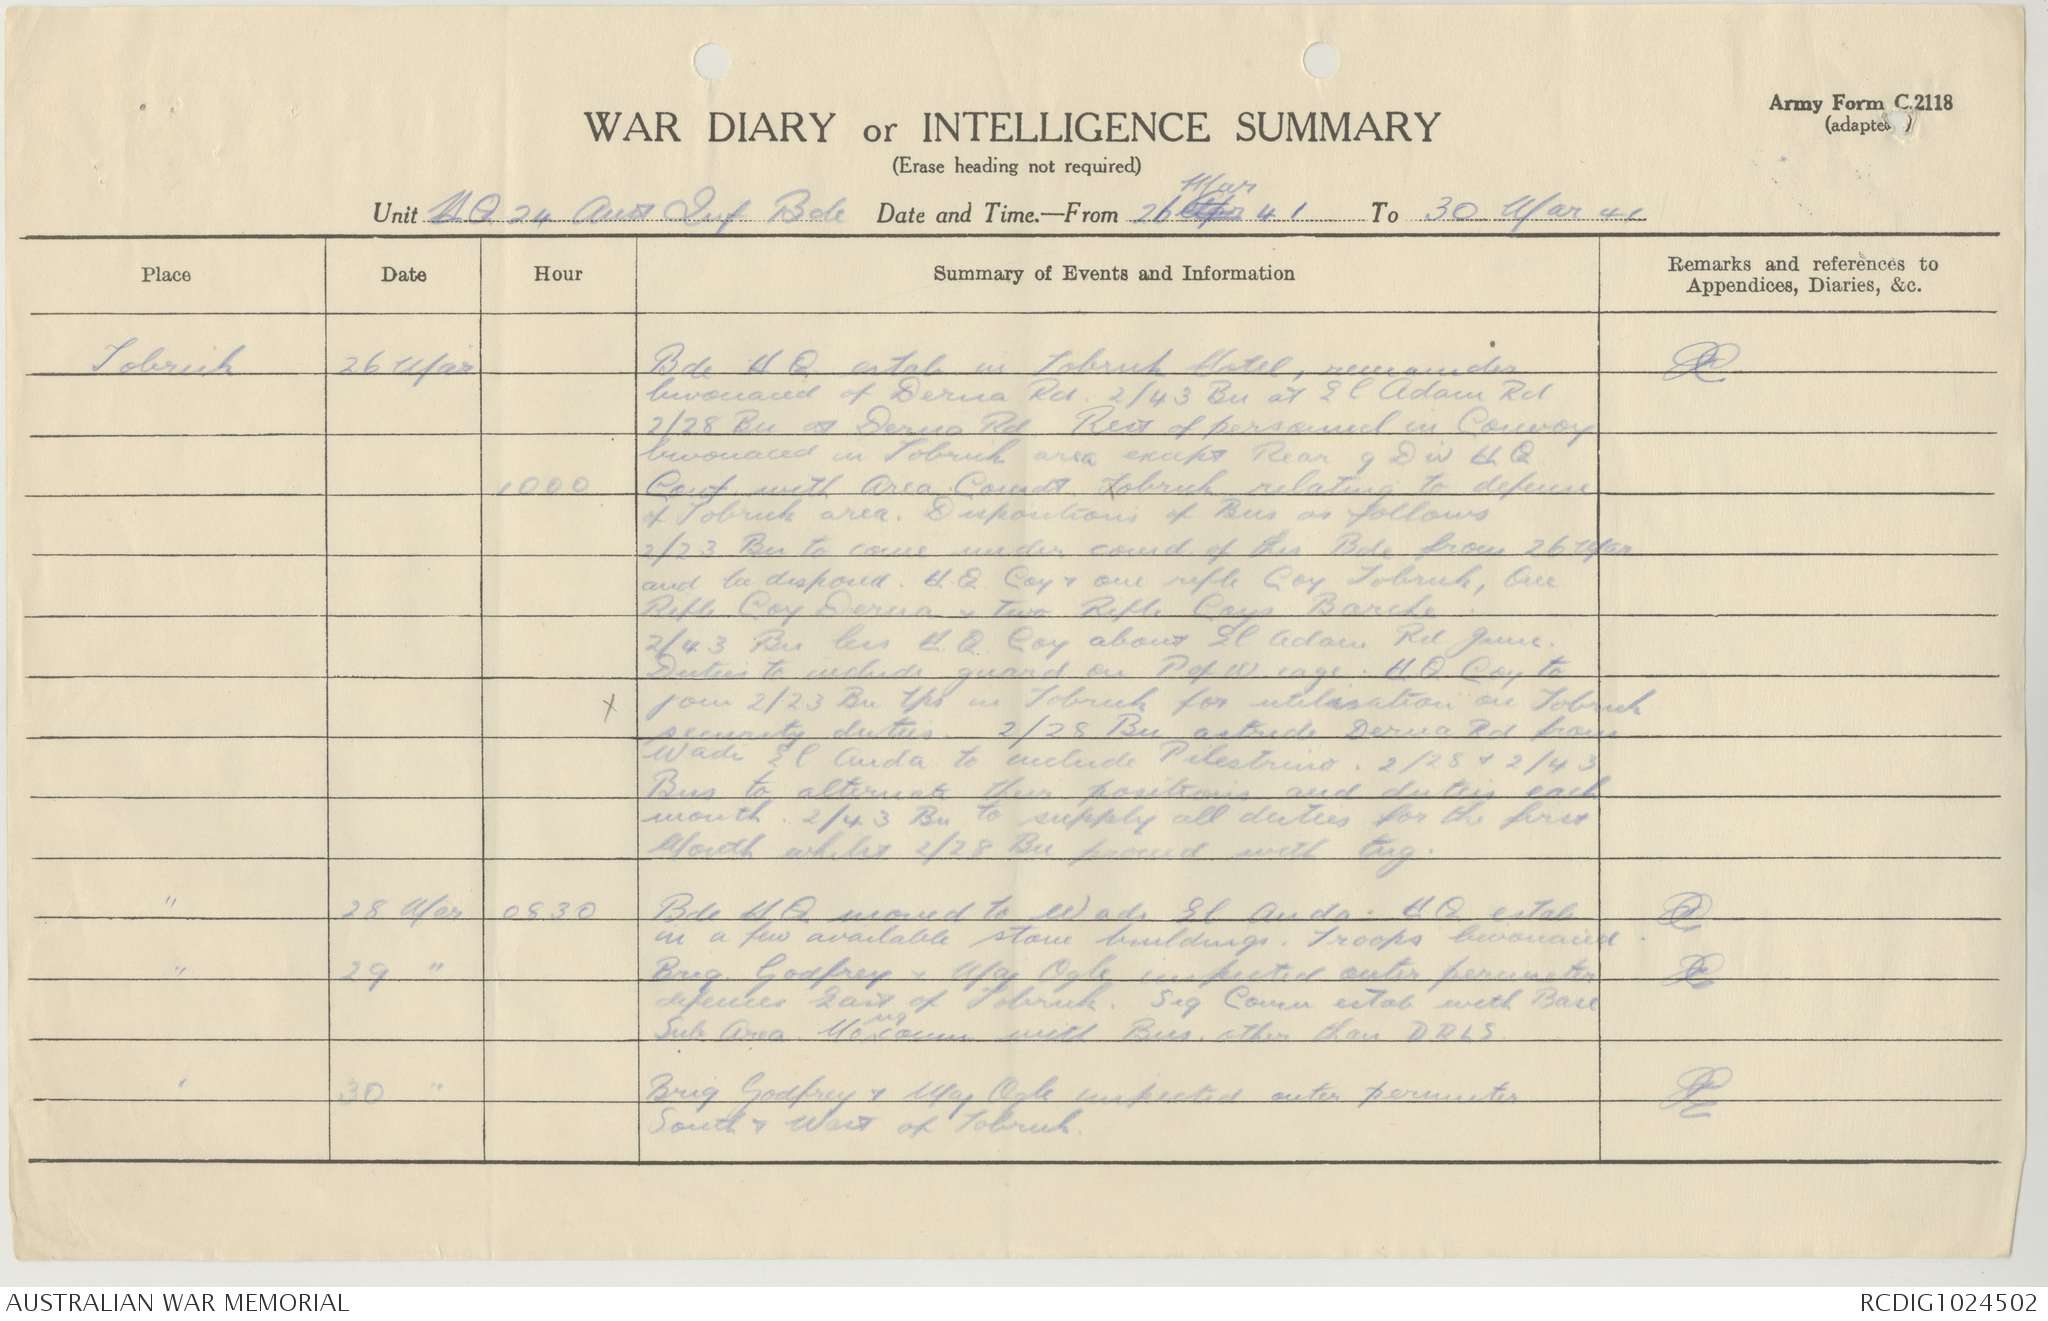 Army Form C.2118
(adapted)
WAR DIARY or INTELLIGENCE SUMMARY
(Erase heading not required)
Mar
Unit HQ 24 Aust Inf Bde Date and Time.—From 26 Apr 41 To 30 Mar 41
Place Date Hour Summary of Events and Information Remarks and references to Appendices, Diaries, &c.
Tobruk 26 Mar Bde HQ estab in Tobruk Hotel, remainder
bivouaced of Derna Rd. 2/43 Bn at El Adam Rd
2/28 Bn at Derna Rd Rest of personnel in Convoy
bivouaced in Tobruk area except Rear 9 Div HQ
1000 Conf. with Area Comdt. Tobruk relating to defence
of Tobruk area. Dispositions of Bns as follows
2/23 Bn to come under comd of this Bde from 26 Mar
and be disposed. HQ Coy & one rifle Coy Tobruk, One
Rifle Coy Derna & two Rifle Coys Barche.
2/43 Bn less HQ Coy about El Adam Rd junc.
Duties to include guard on P of W cage. HQ Coy to
X join 2/23 Bn tps in Tobruk for utilisation on Tobruk
security duties. 2/28 Bn astride Derna Rd from
Wadi El Auda to include Pilestrino. 2/28 & 2/43
Bns to alternate their positions and duties each
month. 2/43 Bn to supply all duties for the first
Month whilst 2/28 Bn proceed with trg.
" 28 Mar 0830 Bde HQ moved to Wadi El Auda. HQ estab
in a few available stone buildings. Troops bivouaced.
" 29 " Brig. Godfrey & Maj Ogle inspected outer perimeter
defences East of Tobruk. Sig Comn estab with Base
Sub Area. No comn with Bns. other than DRLS.
" 30 " Brig Godfrey & Maj Ogle inspected outer perimeter
South & West of Tobruk.
AUSTRALIAN WAR MEMORIAL RCDIG1024502